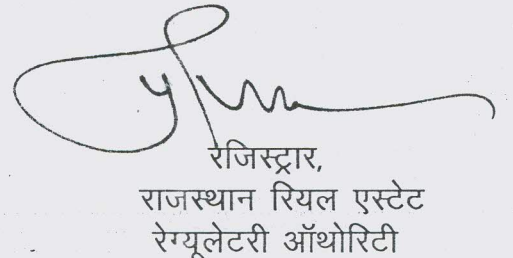 रजिस्ट्रार,
राजस्थान रियल एस्टेट
रेग्यूलेटरी ऑथोरिटी